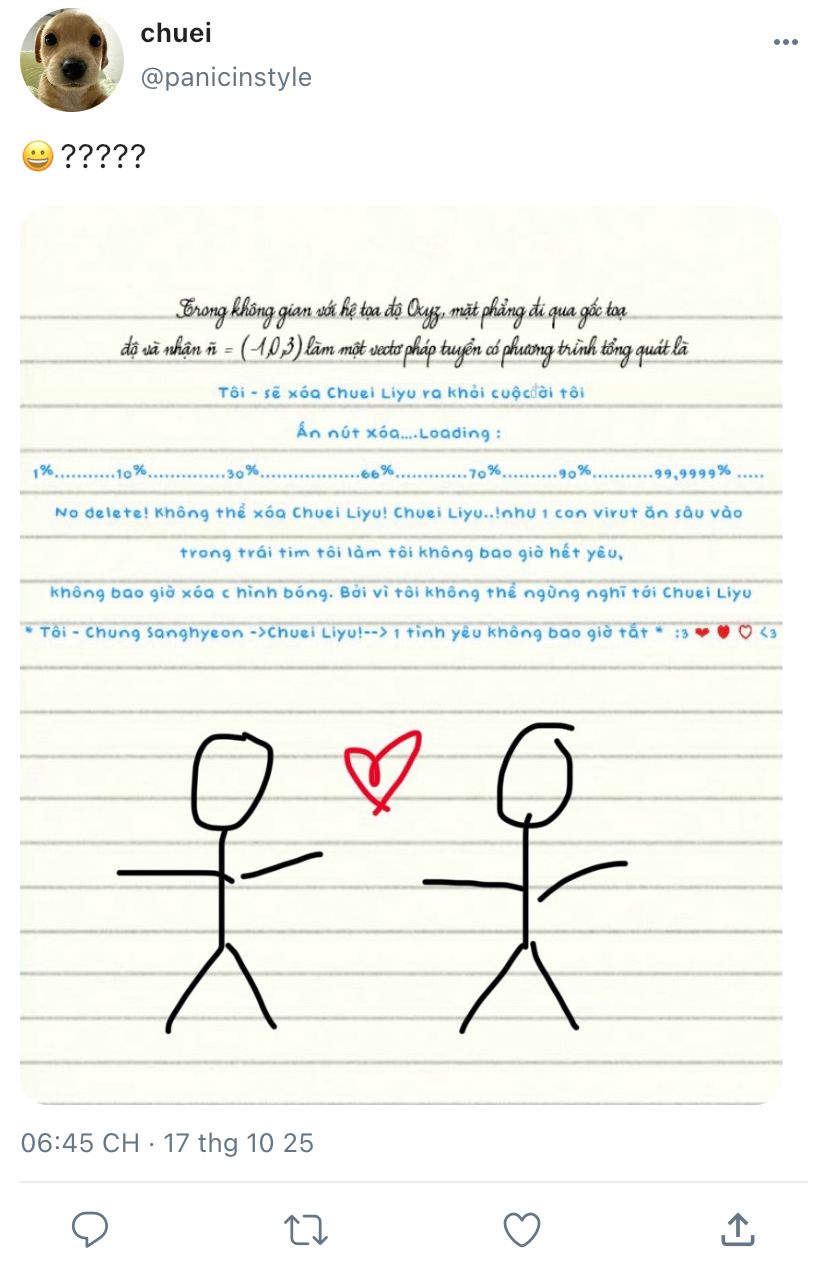 chuei
@panicinstyle
😀?????
Trong không gian với hệ tọa độ Oxyz, mặt phẳng đi qua gốc toạ
độ và nhận ñ = (-1,0,3) làm một vectơ pháp tuyến có phương trình tổng quát là
Tôi - sẽ xóa Chuei Liyu ra khỏi cuộcđời tôi
Ấn nút xóa....Loading :
1%...........10%..............30%..................66%.............70%..........90%...........99,9999% .....
No delete! Không thể xóa Chuei Liyu! Chuei Liyu..!như 1 con virut ăn sâu vào
trong trái tim tôi làm tôi không bao giờ hết yêu,
không bao giờ xóa c hình bóng. Bởi vì tôi không thể ngừng nghĩ tới Chuei Liyu
* Tôi - Chung Sanghyeon ->Chuei Liyu!--> 1 tình yêu không bao giờ tắt * :3 ❤ ♥ ♡ <3
06:45 CH · 17 thg 10 25